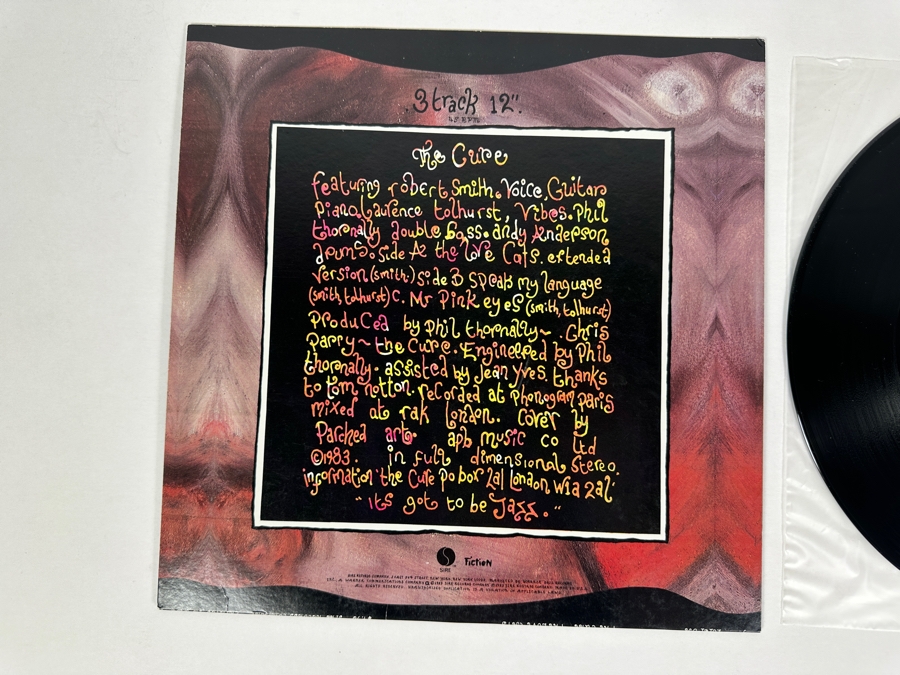 3 track 12".
45 RPM
The Cure
featuring robert smith. Voice Guitar
piano. Laurence tolhurst, Vibes. Phil
thornally double bass. andy Anderson
drums. side A the love Cats. extended
version (smith.) side B speak my language
(smith, tolhurst) C. Mr Pink eyes (smith, tolhurst)
produced by phil thornally~. Chris
parry~ the Cure. Engineered by Phil
thornally. assisted by Jean yves. thanks
to tom notton. recorded at phonogram paris
mixed at rak london. cover by
Parched art. apb music co ltd
©1983. in full dimensional stereo.
information the Cure po box 2al London W1a 2al
"its got to be Jazz."
SIRE Fiction